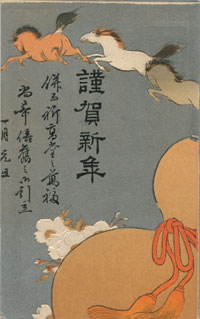 謹賀新年
併而祈高堂之萬福
尚希倍舊之御引立
一月元旦